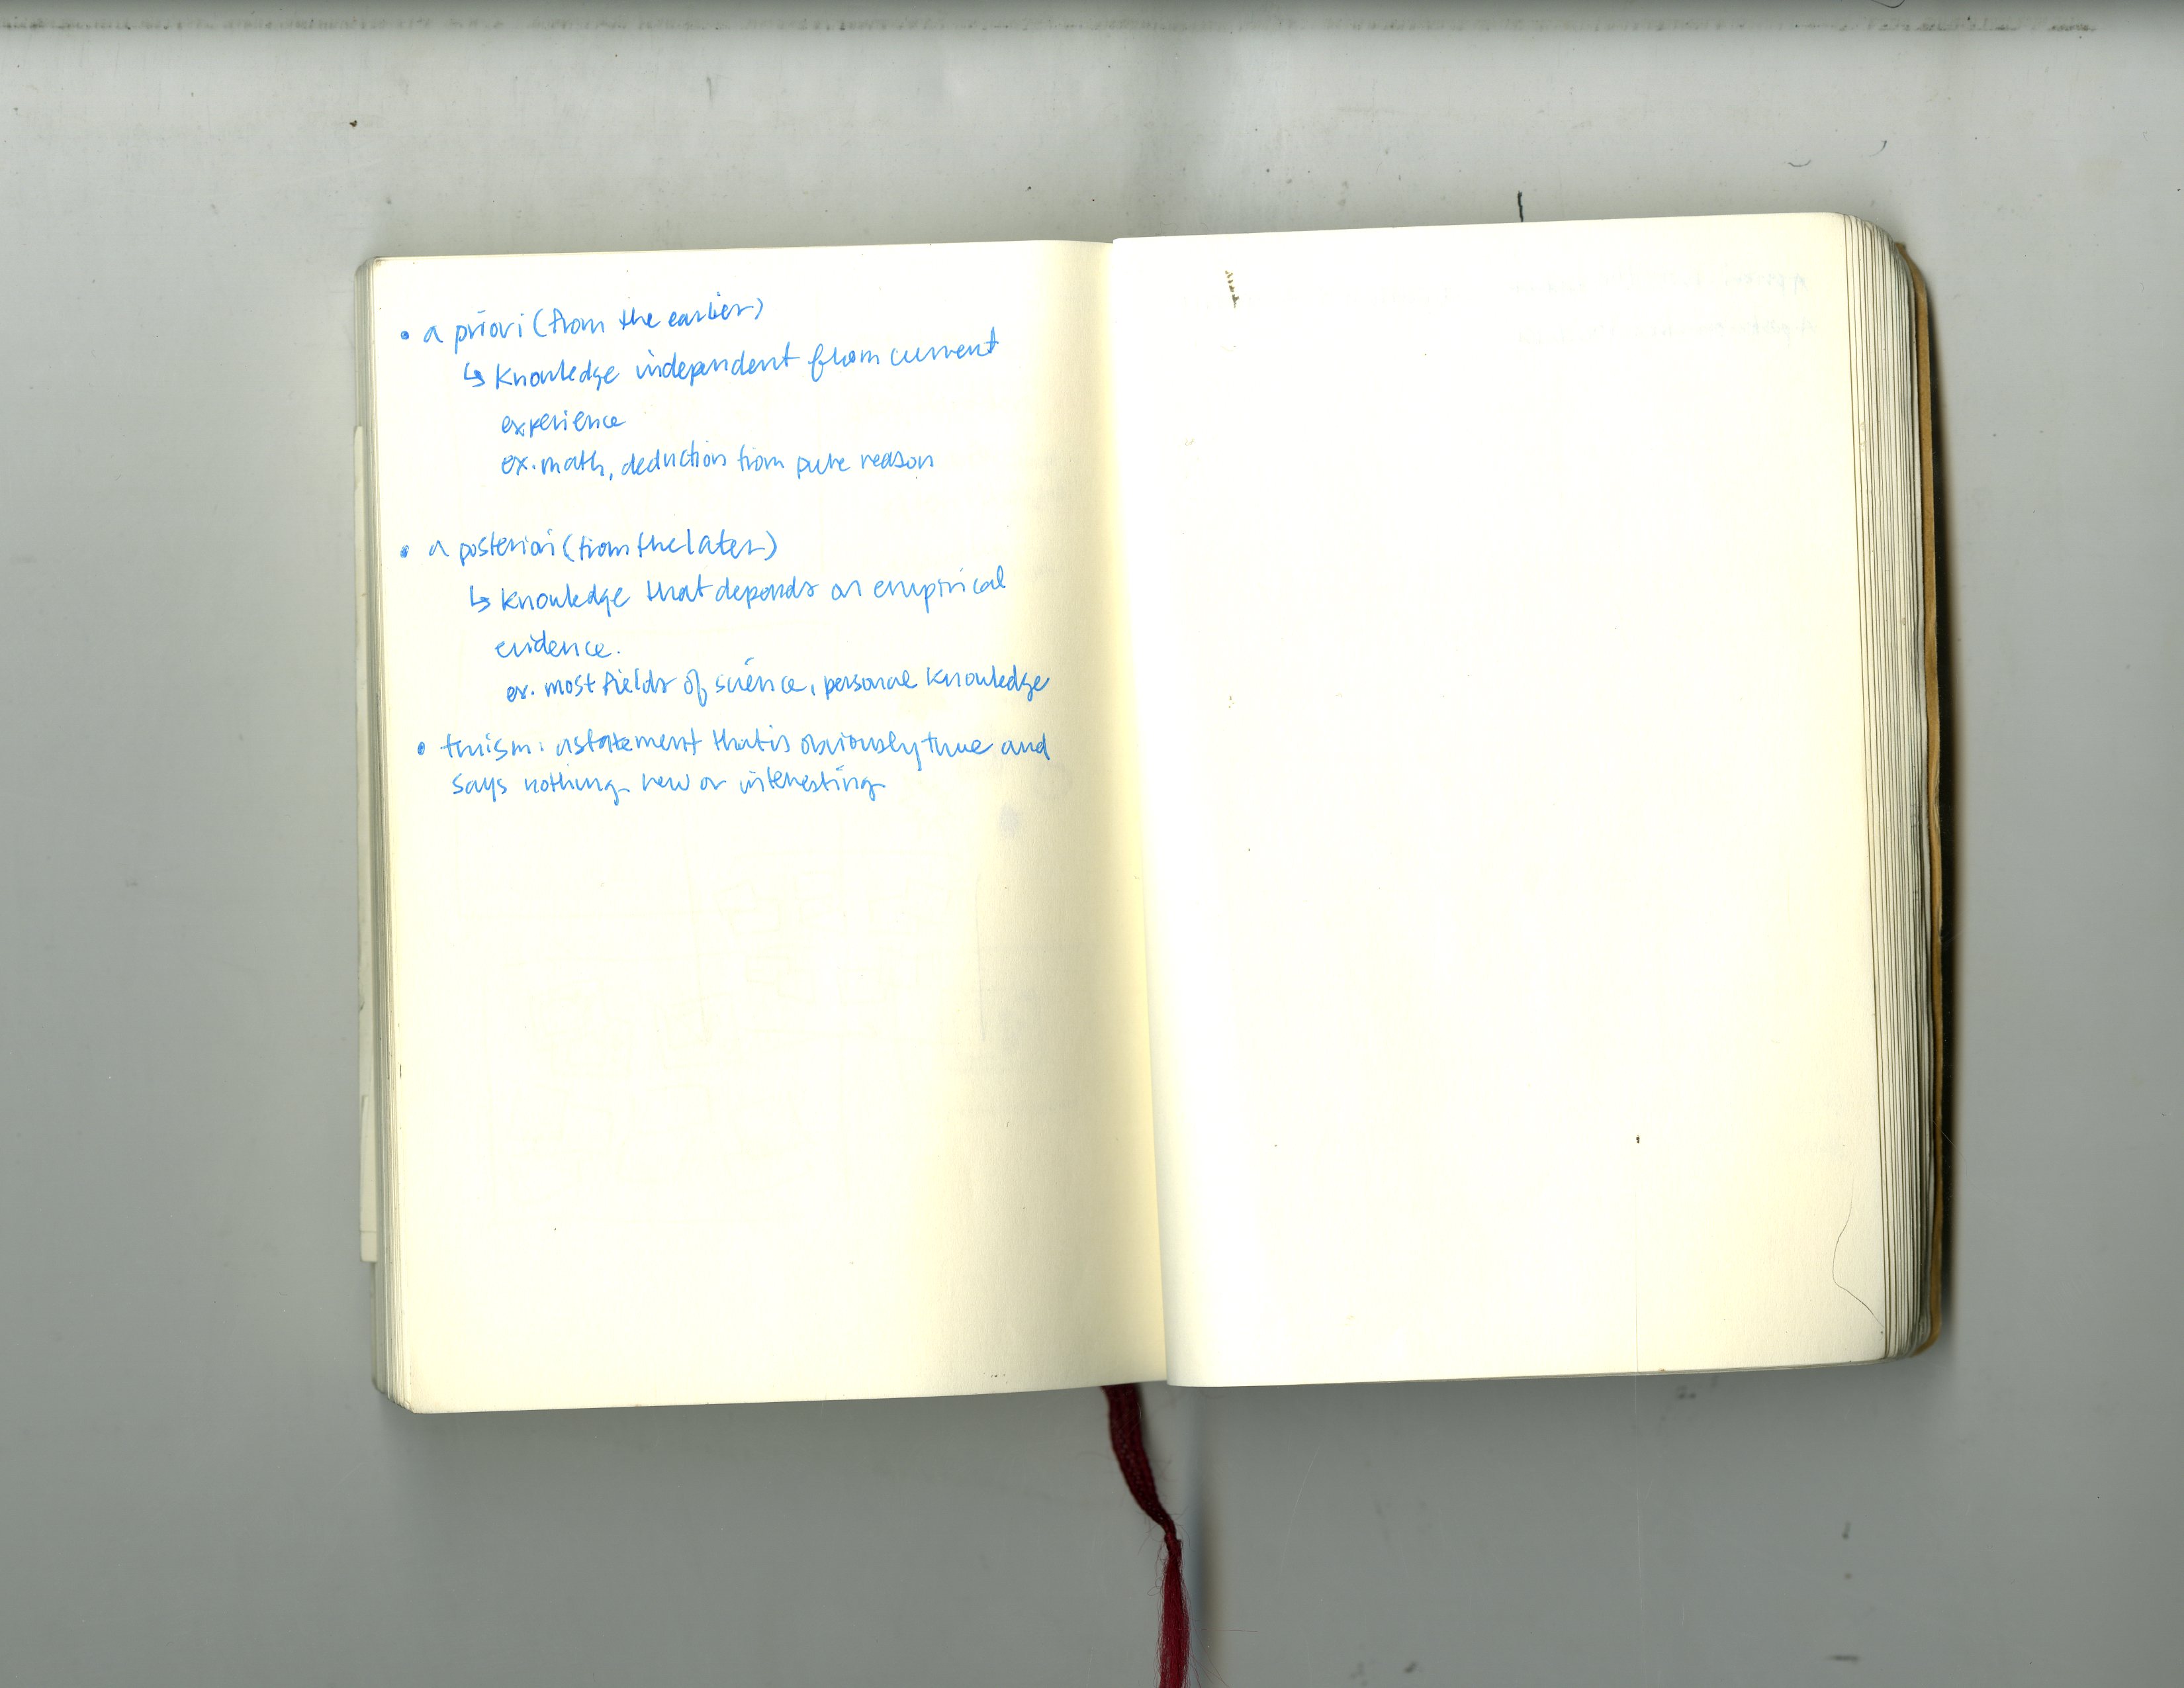 • a priori (from the earlier)
↳ knowledge independent from current
experience
ex. math, deduction from pure reason
• a posteriori (from the later)
↳ knowledge that depends on empirical
evidence.
ex. most fields of science, personal knowledge
• truism: a statement that is obviously true and
says nothing new or interesting